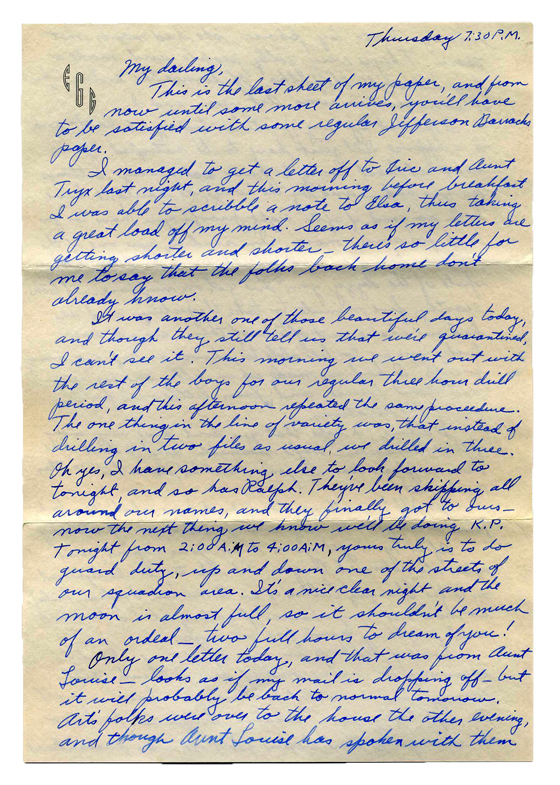 Thursday 7:30 P.M.
EGG
My darling,
This is the last sheet of my paper, and from
now until some more arrives, you'll have
to be satisfied with some regular Jefferson Barracks
paper.
I managed to get a letter off to and Aunt
Tryx last night, and this morning before breakfast
I was able to scribble a note to Elsa, thus taking
a great load off my mind. Seems as if my letters are
getting shorter and shorter – there's so little for
me to say that the folks back home don't
already know.
It was another one of those beautiful days today,
and though they still tell us that we're quarantined,
I can't see it. This morning we went out with
the rest of the boys for our regular three hour drill
period, and this afternoon repeated the same proceedure.
The one thing in the line of variety was, that instead of
drilling in two files as usual, we drilled in three.
Oh yes, I have something else to look forward to
tonight, and so has Ralph. They've been skipping all
around our names, and they finally got to ours –
now the next thing we know we'll be doing K.P.
Tonight from 2:00 A.M. to 4:00 A.M., yours truly is to do
guard duty, up and down one of the streets of
our squadron area. It's a nice clear night and the
moon is almost full, so it shouldn't be much
of an ordeal – two full hours to dream of you!
Only one letter today, and that was from Aunt
Louise – looks as if my mail is dropping off – but
it will probably be back to normal tomorrow.
Art's folks were over to the house the other evening,
and though Aunt Louise has spoken with them